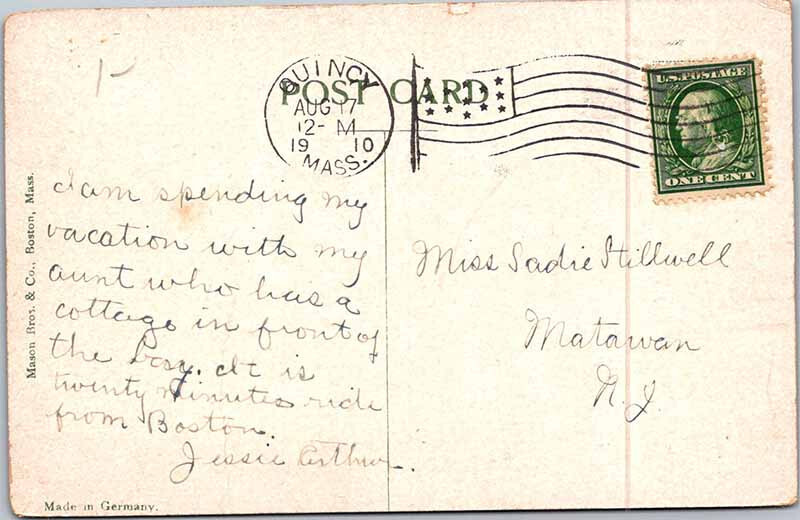 1-
POST CARD
QUINCY
AUG 17
12-M
19 10
MASS.
U.S. POSTAGE
ONE CENT
I am spending my
vacation with my
aunt who has a
cottage in front of
the bay. It is
twenty minutes ride
from Boston.
Jessie Arthur.
Miss Sadie Stillwell
Matawan
N.J.
Mason Bros. & Co., Boston, Mass.
Made in Germany.